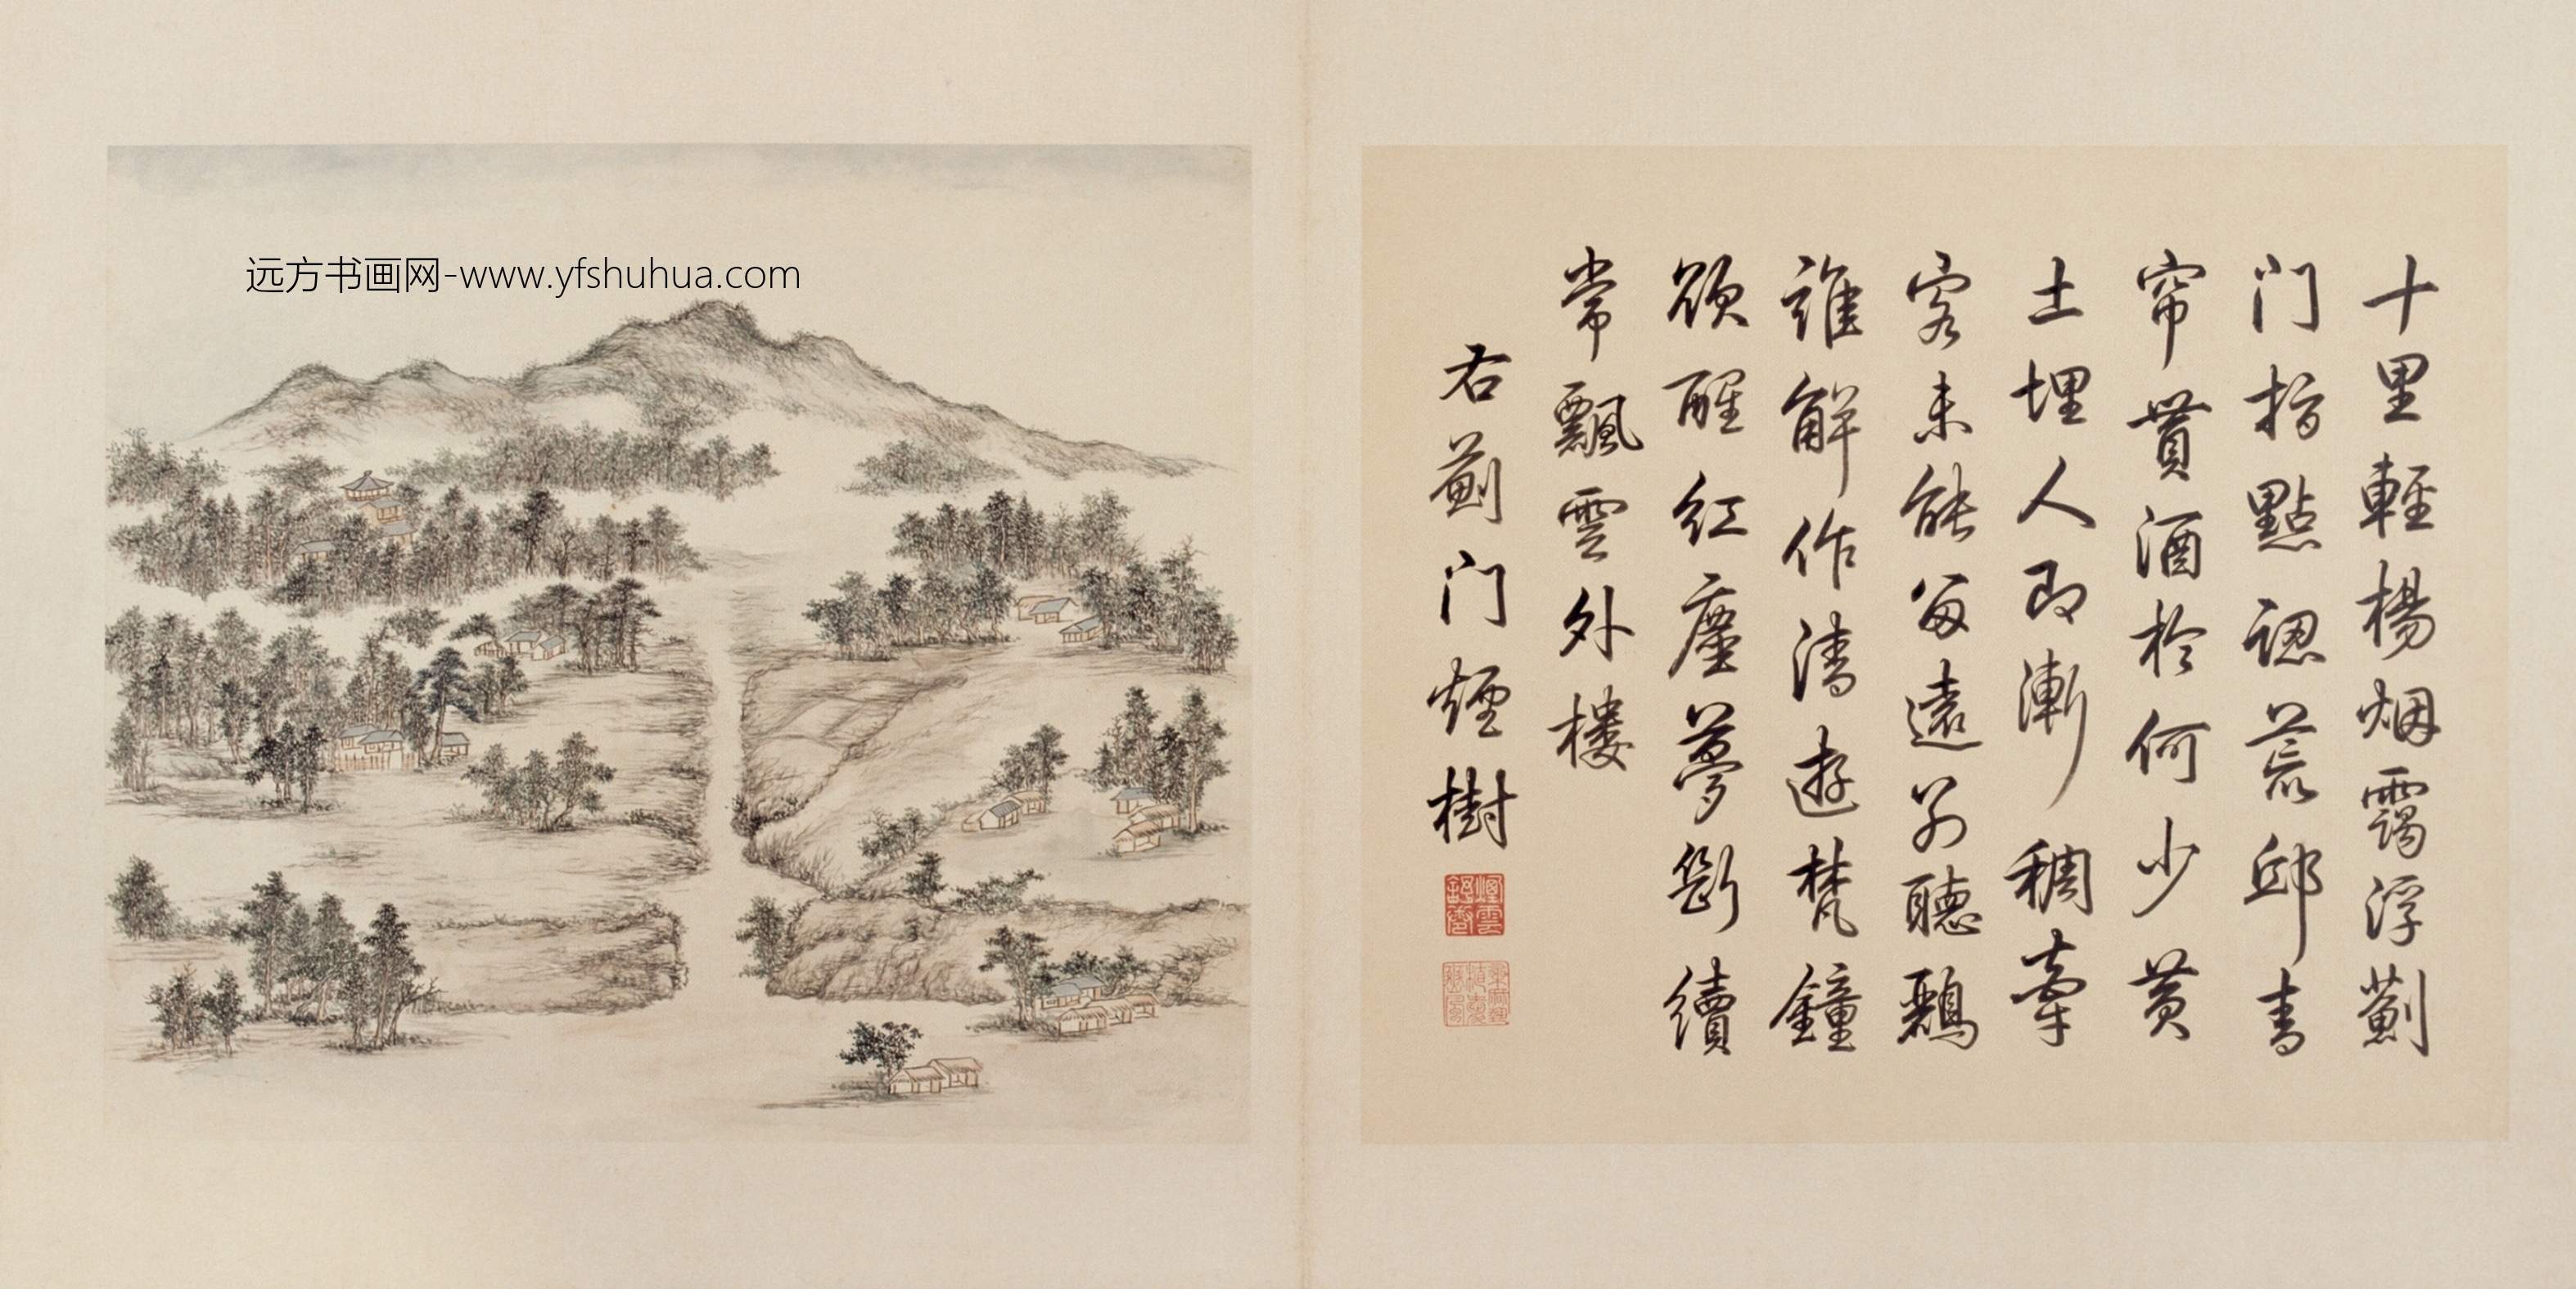 远方书画网-www.yfshuhua.com
十里輕楊烟靄浮薊
门指點認荒邱青
帘貰酒於何少黄
土埋人即漸稠牽
客未能留遠別聽鸝
誰解作清遊梵鐘
欲醒紅塵夢斷續
常飄雲外樓
右薊门煙樹